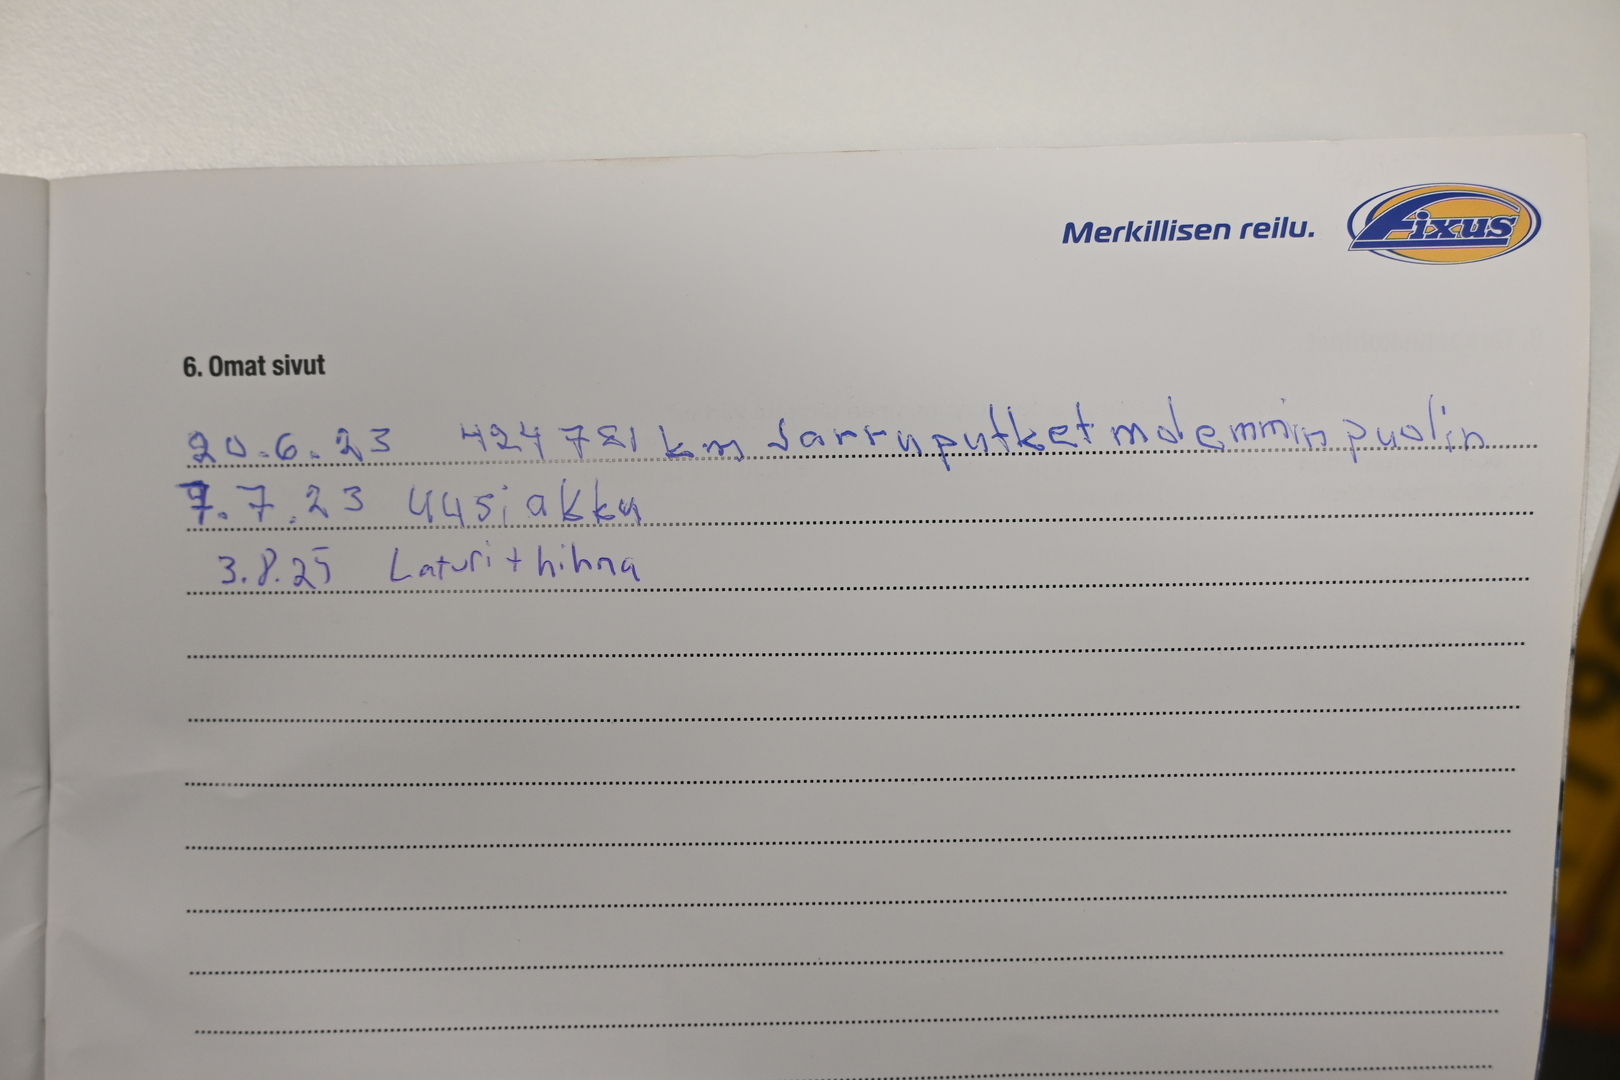 Merkillisen reilu. Fixus
6. Omat sivut
20.6.23 424781 km Jarruputket molemmin puolin
7.7.23 uusi akku
3.8.25 Laturi + hihna